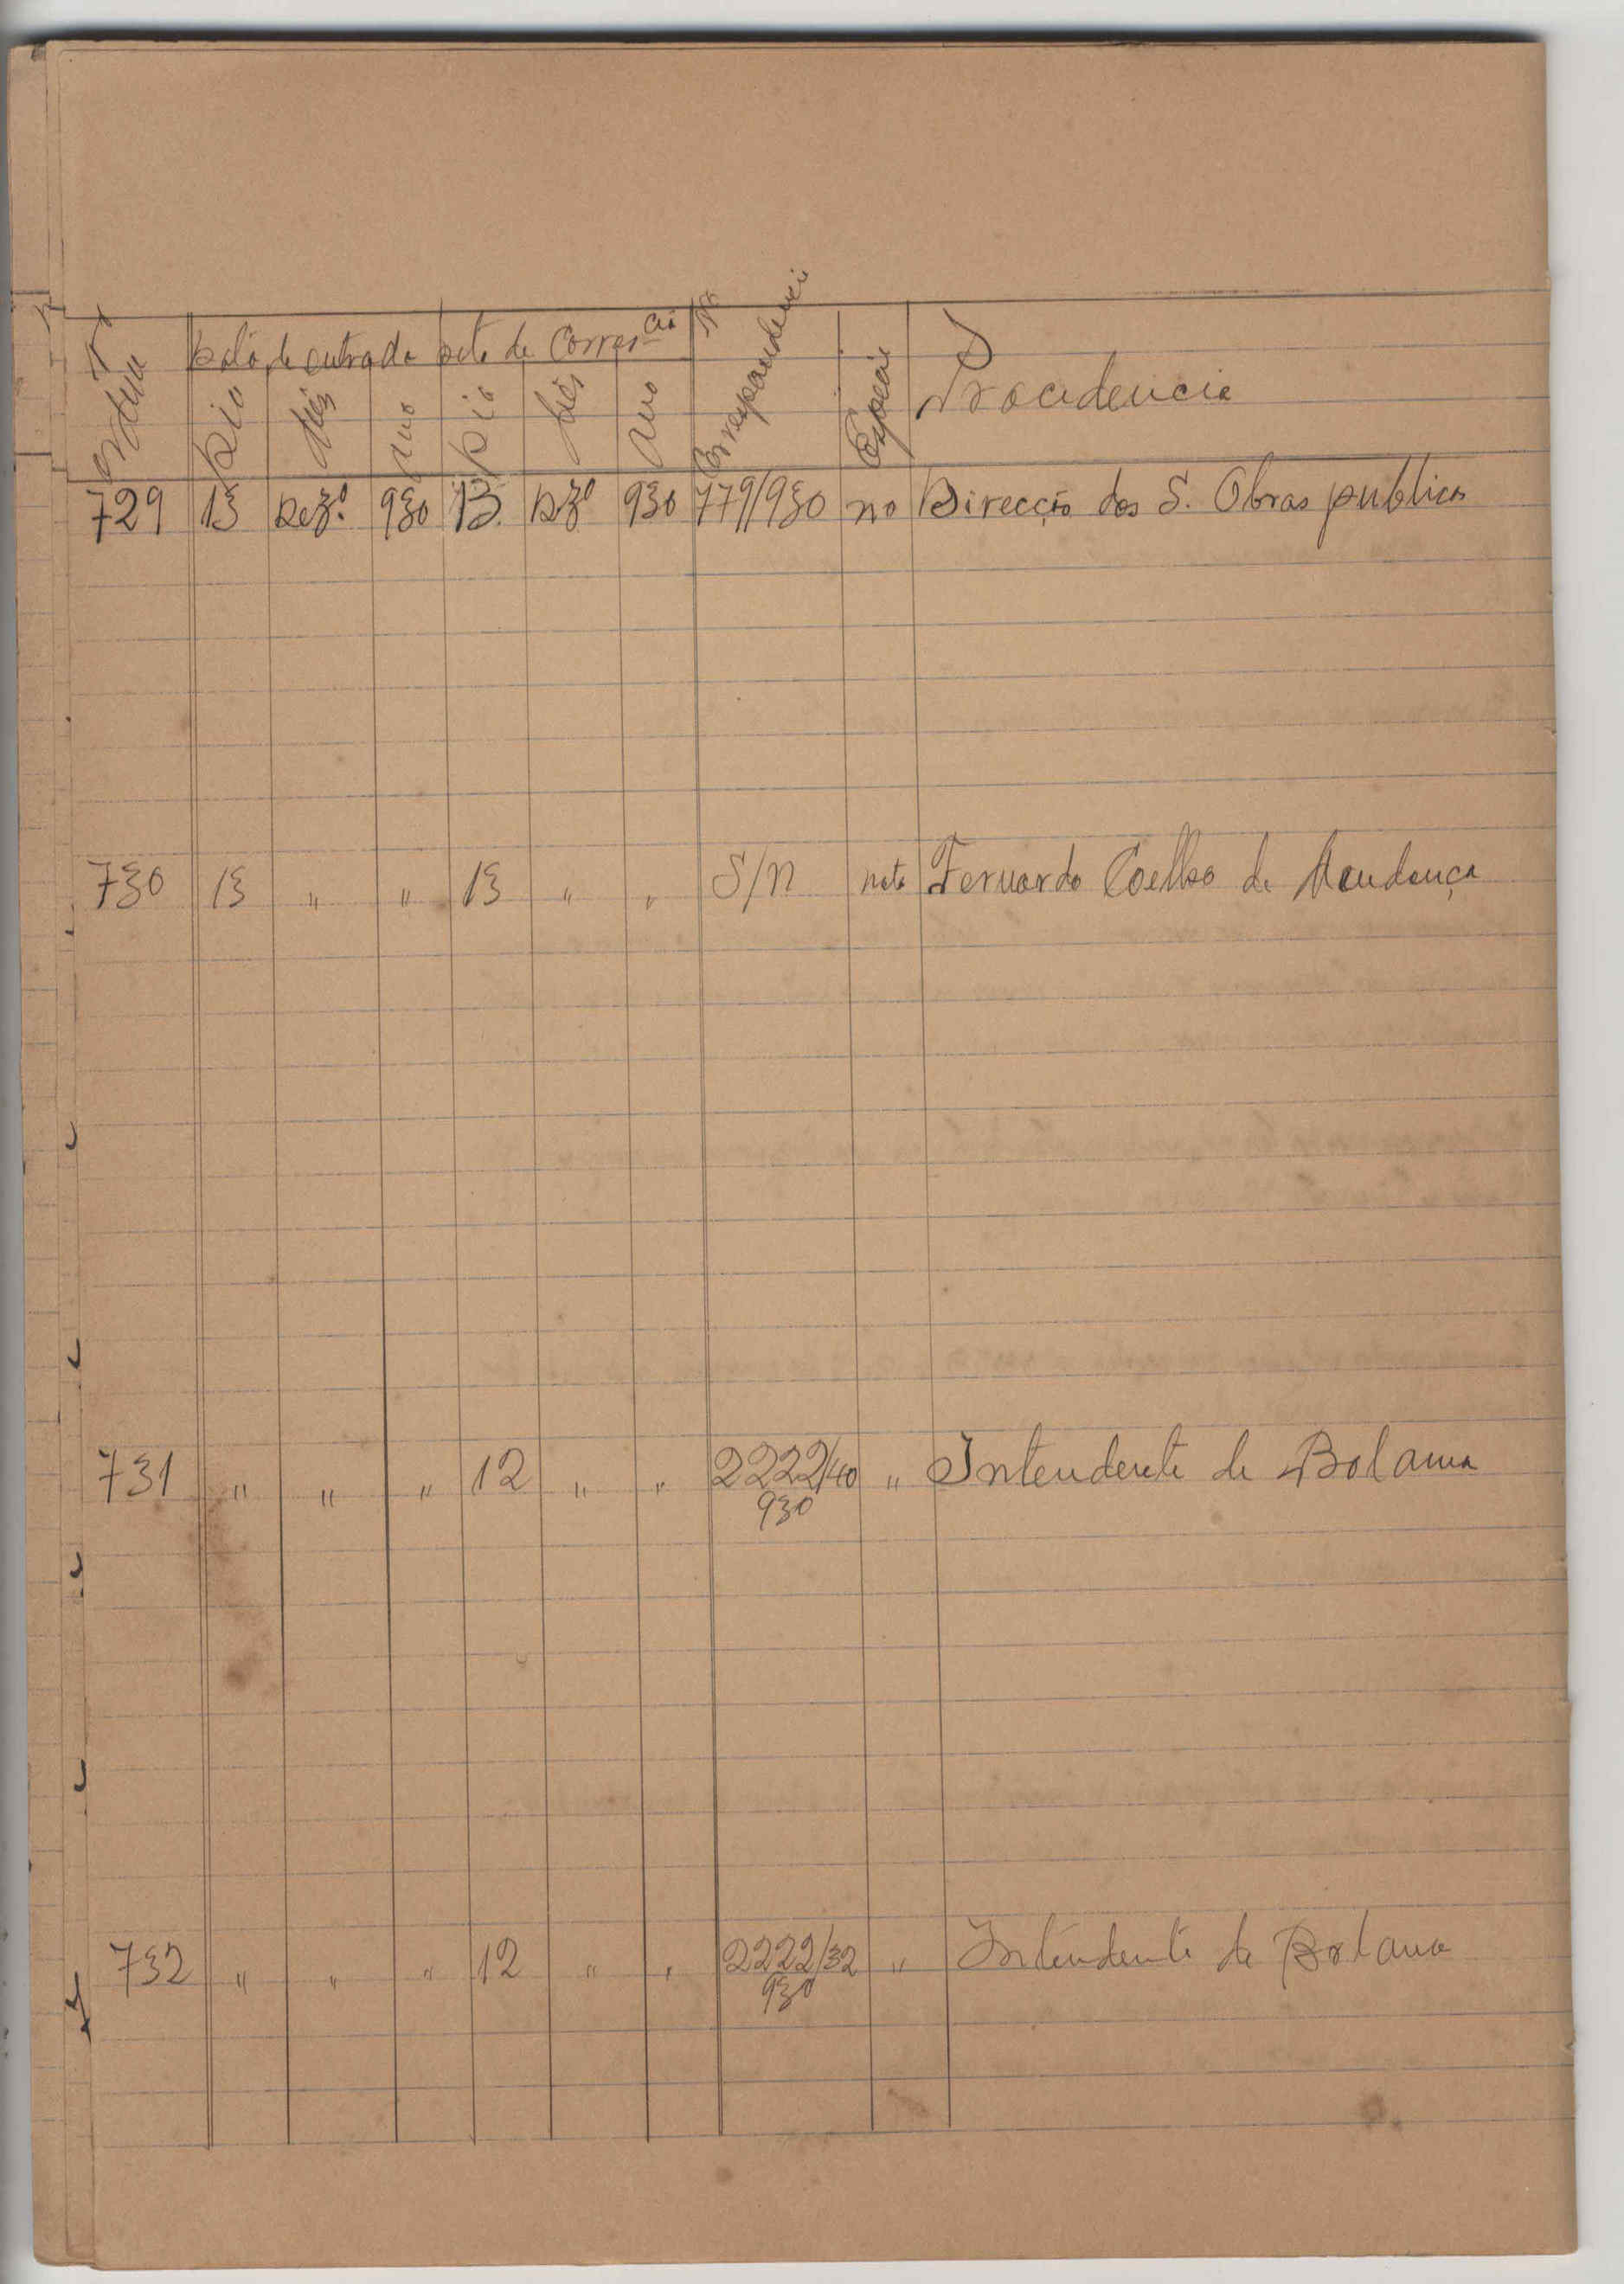 Nº ordem Data de entrada Data de Corres.cia Nº Correspondencia Especie Procedencia
Dia Mês Ano Dia Mês Ano
729 13 Dezº. 930 13 Dzº 930 779/930 no Direcção dos S. Obras publicas
730 13 " " 13 " " S/n nota Fernando Coelho de Mendonça
731 " " " 12 " " 2222/40 " Intendente de Bolama
930
732 " " " 12 " " 2222/32 " Intendente de Bolama
930